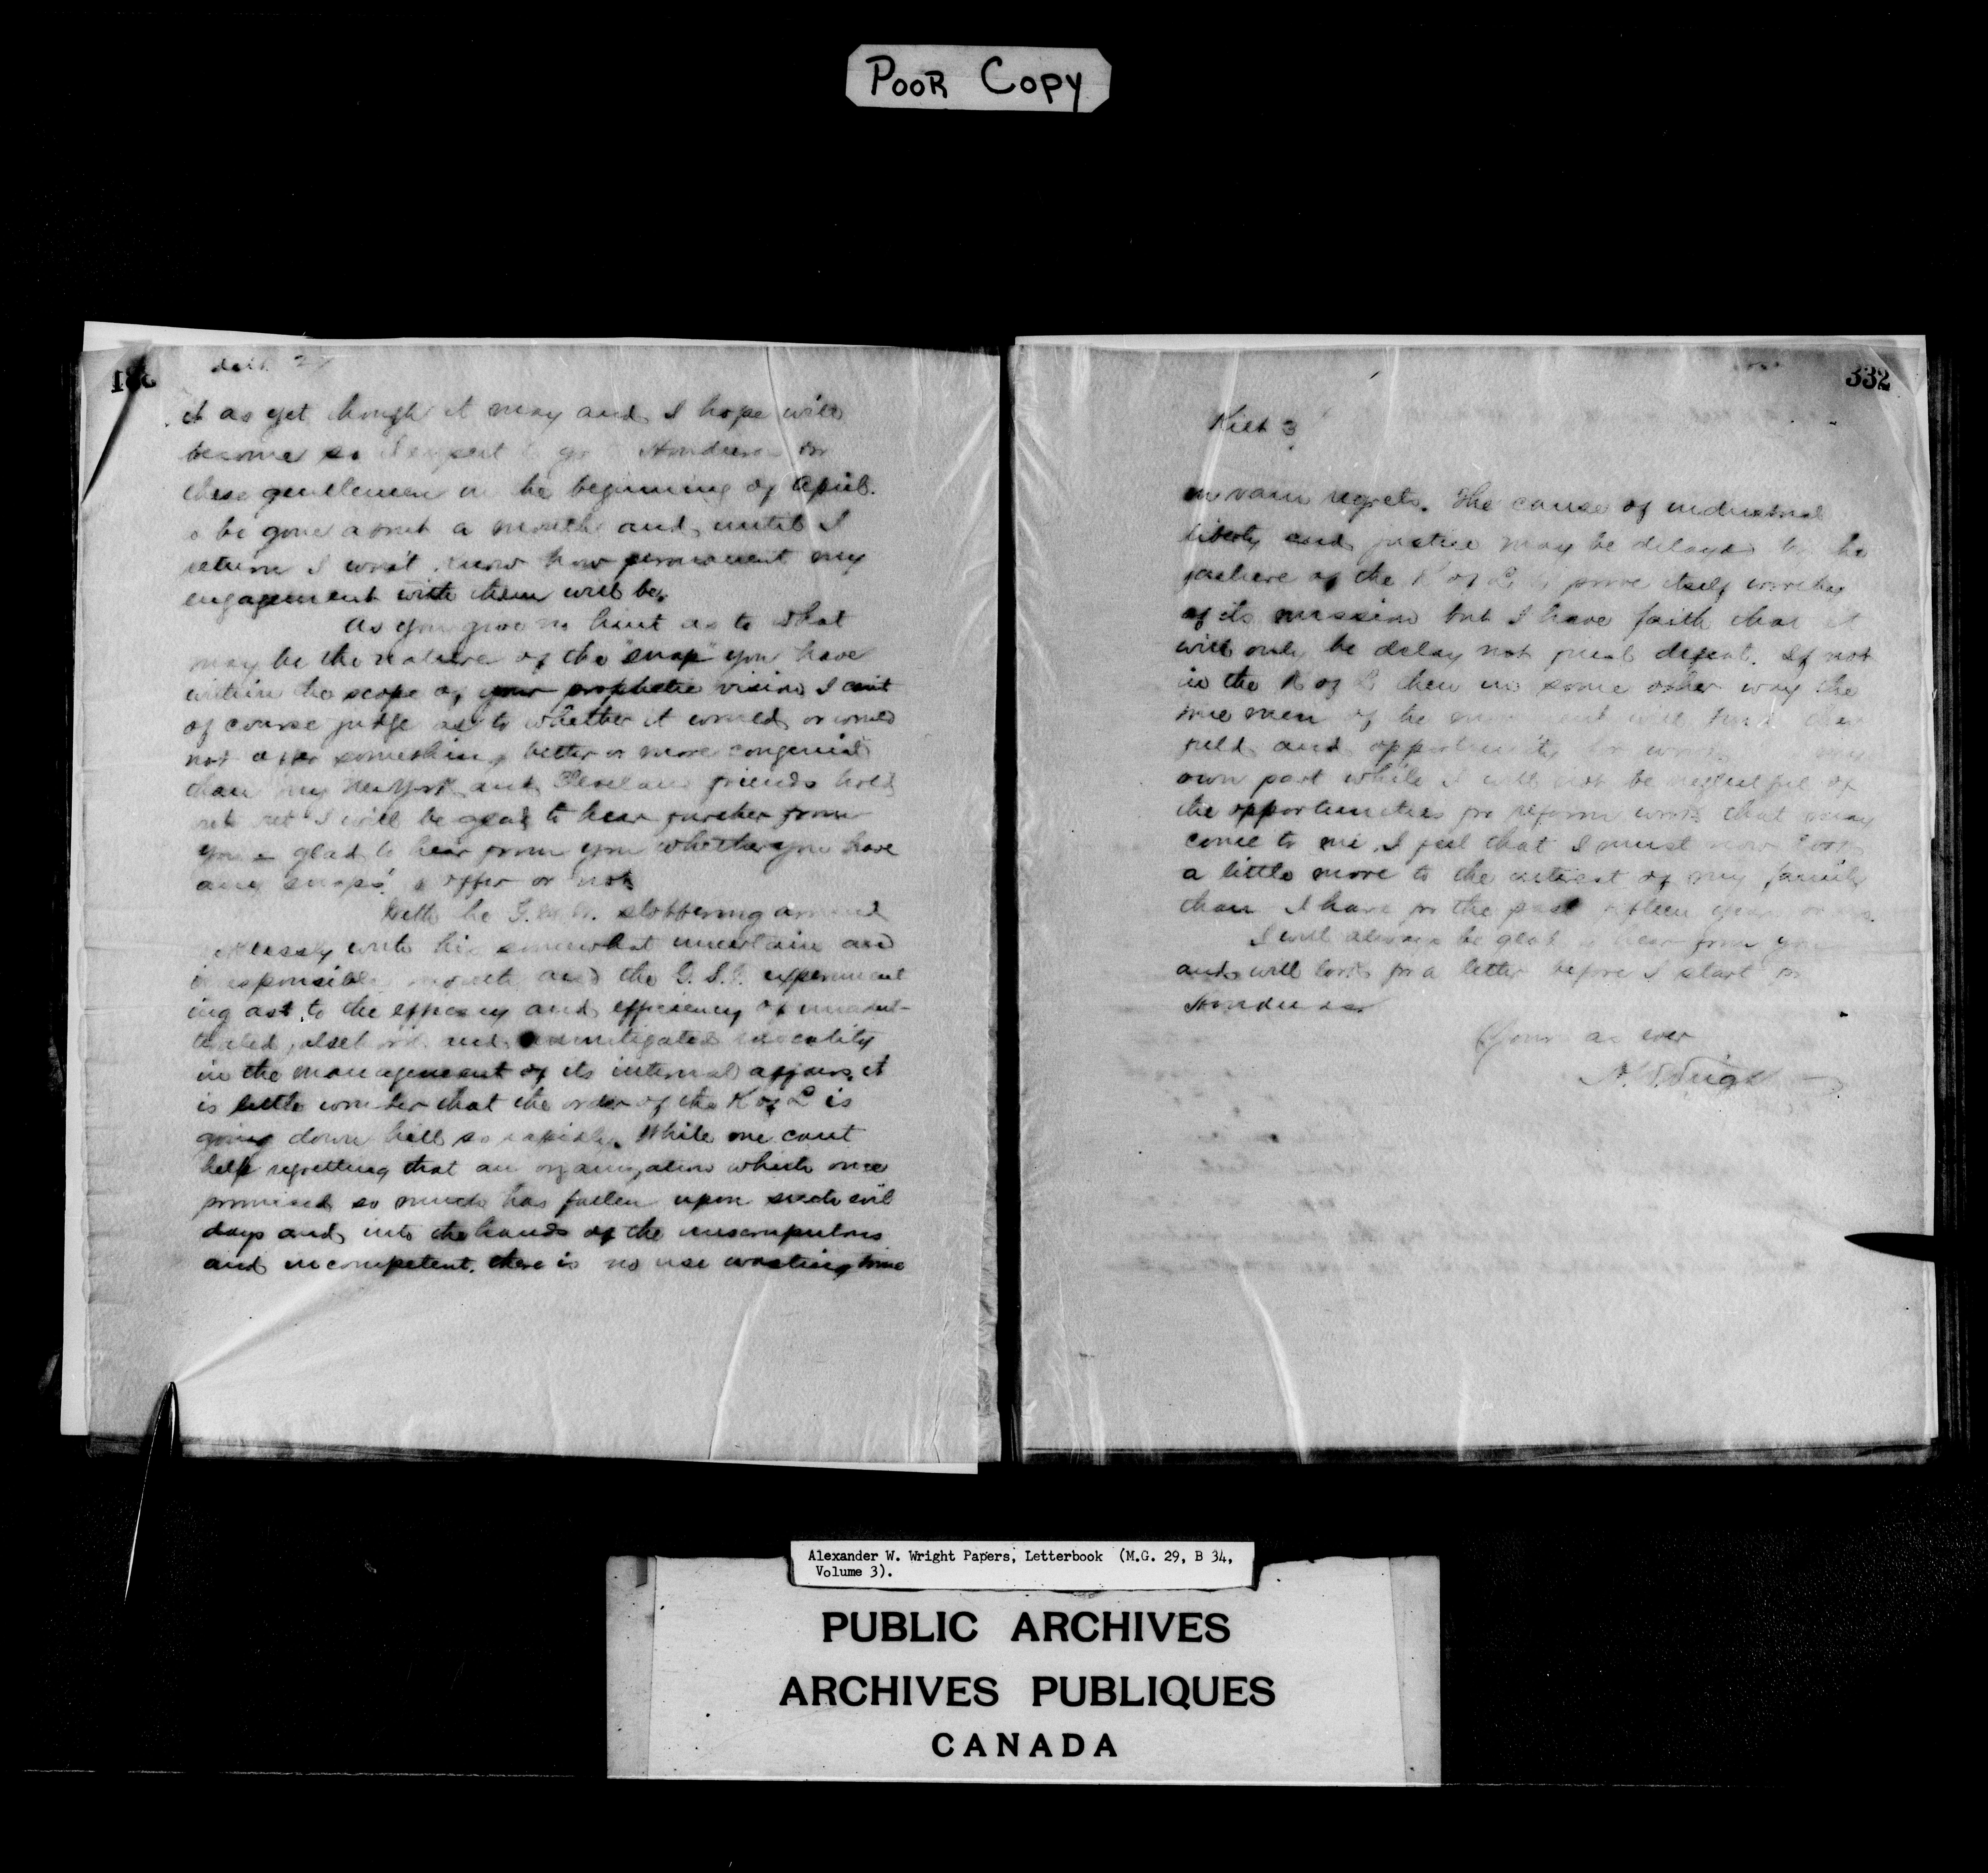 POOR COPY
331
it as yet though it may and I hope will
become so I expect to go Honduras for
these gentlemen in the beginning of April.
to be gone about a month and until I
return I won't know how permanent my
engagement with them will be.
As you give no hint as to what
may be the nature of the "snap" you have
within the scope of your prophetic vision I can't
of course judge as to whether it would or would
not offer something better or more congenial
than my New York and Cleveland friends hold
out yet I will be glad to hear further from
you glad to hear from you whether you have
any "snaps" to offer or not
With the G.M.W. slobbering around
with his somewhat uncertain and
irresponsible mouth and the G.S.T. experiment
ing as to the efficacy and efficiency of unadul-
terated falsehood and unmitigated rascality
in the management of its internal affairs, it
is little wonder that the order of the K of L is
going down hill so rapidly. While one cant
help regretting that an organization which once
promised so much has fallen upon such evil
days and into the hands of the unscrupulous
and incompetent, there is no use wasting time
332
3
in vain regrets. The cause of industrial
liberty and justice may be delayed by the
failure of the K of L to prove itself worthy
of its mission but I have faith that it
will only be delay not final defeat. If not
in the K of L then in some other way the
true men of the movement will find their
field and opportunity for work my
own part while I will not be neglectful of
the opportunities for reform work that may
come to me, I feel that I must now look
a little more to the interest of my family
than I have for the past fifteen years or so.
I will always be glad to hear from you
and will look for a letter before I start for
Honduras
Yours as ever
A. W. Wright
Alexander W. Wright Papers, Letterbook (M.G. 29, B 34,
Volume 3).
PUBLIC ARCHIVES
ARCHIVES PUBLIQUES
CANADA